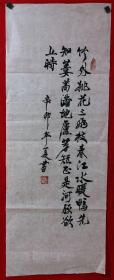 竹外桃花三两枝春江水暖鸭先
知蒌蒿满地芦芽短正是河豚欲
上时
辛卯年夏书